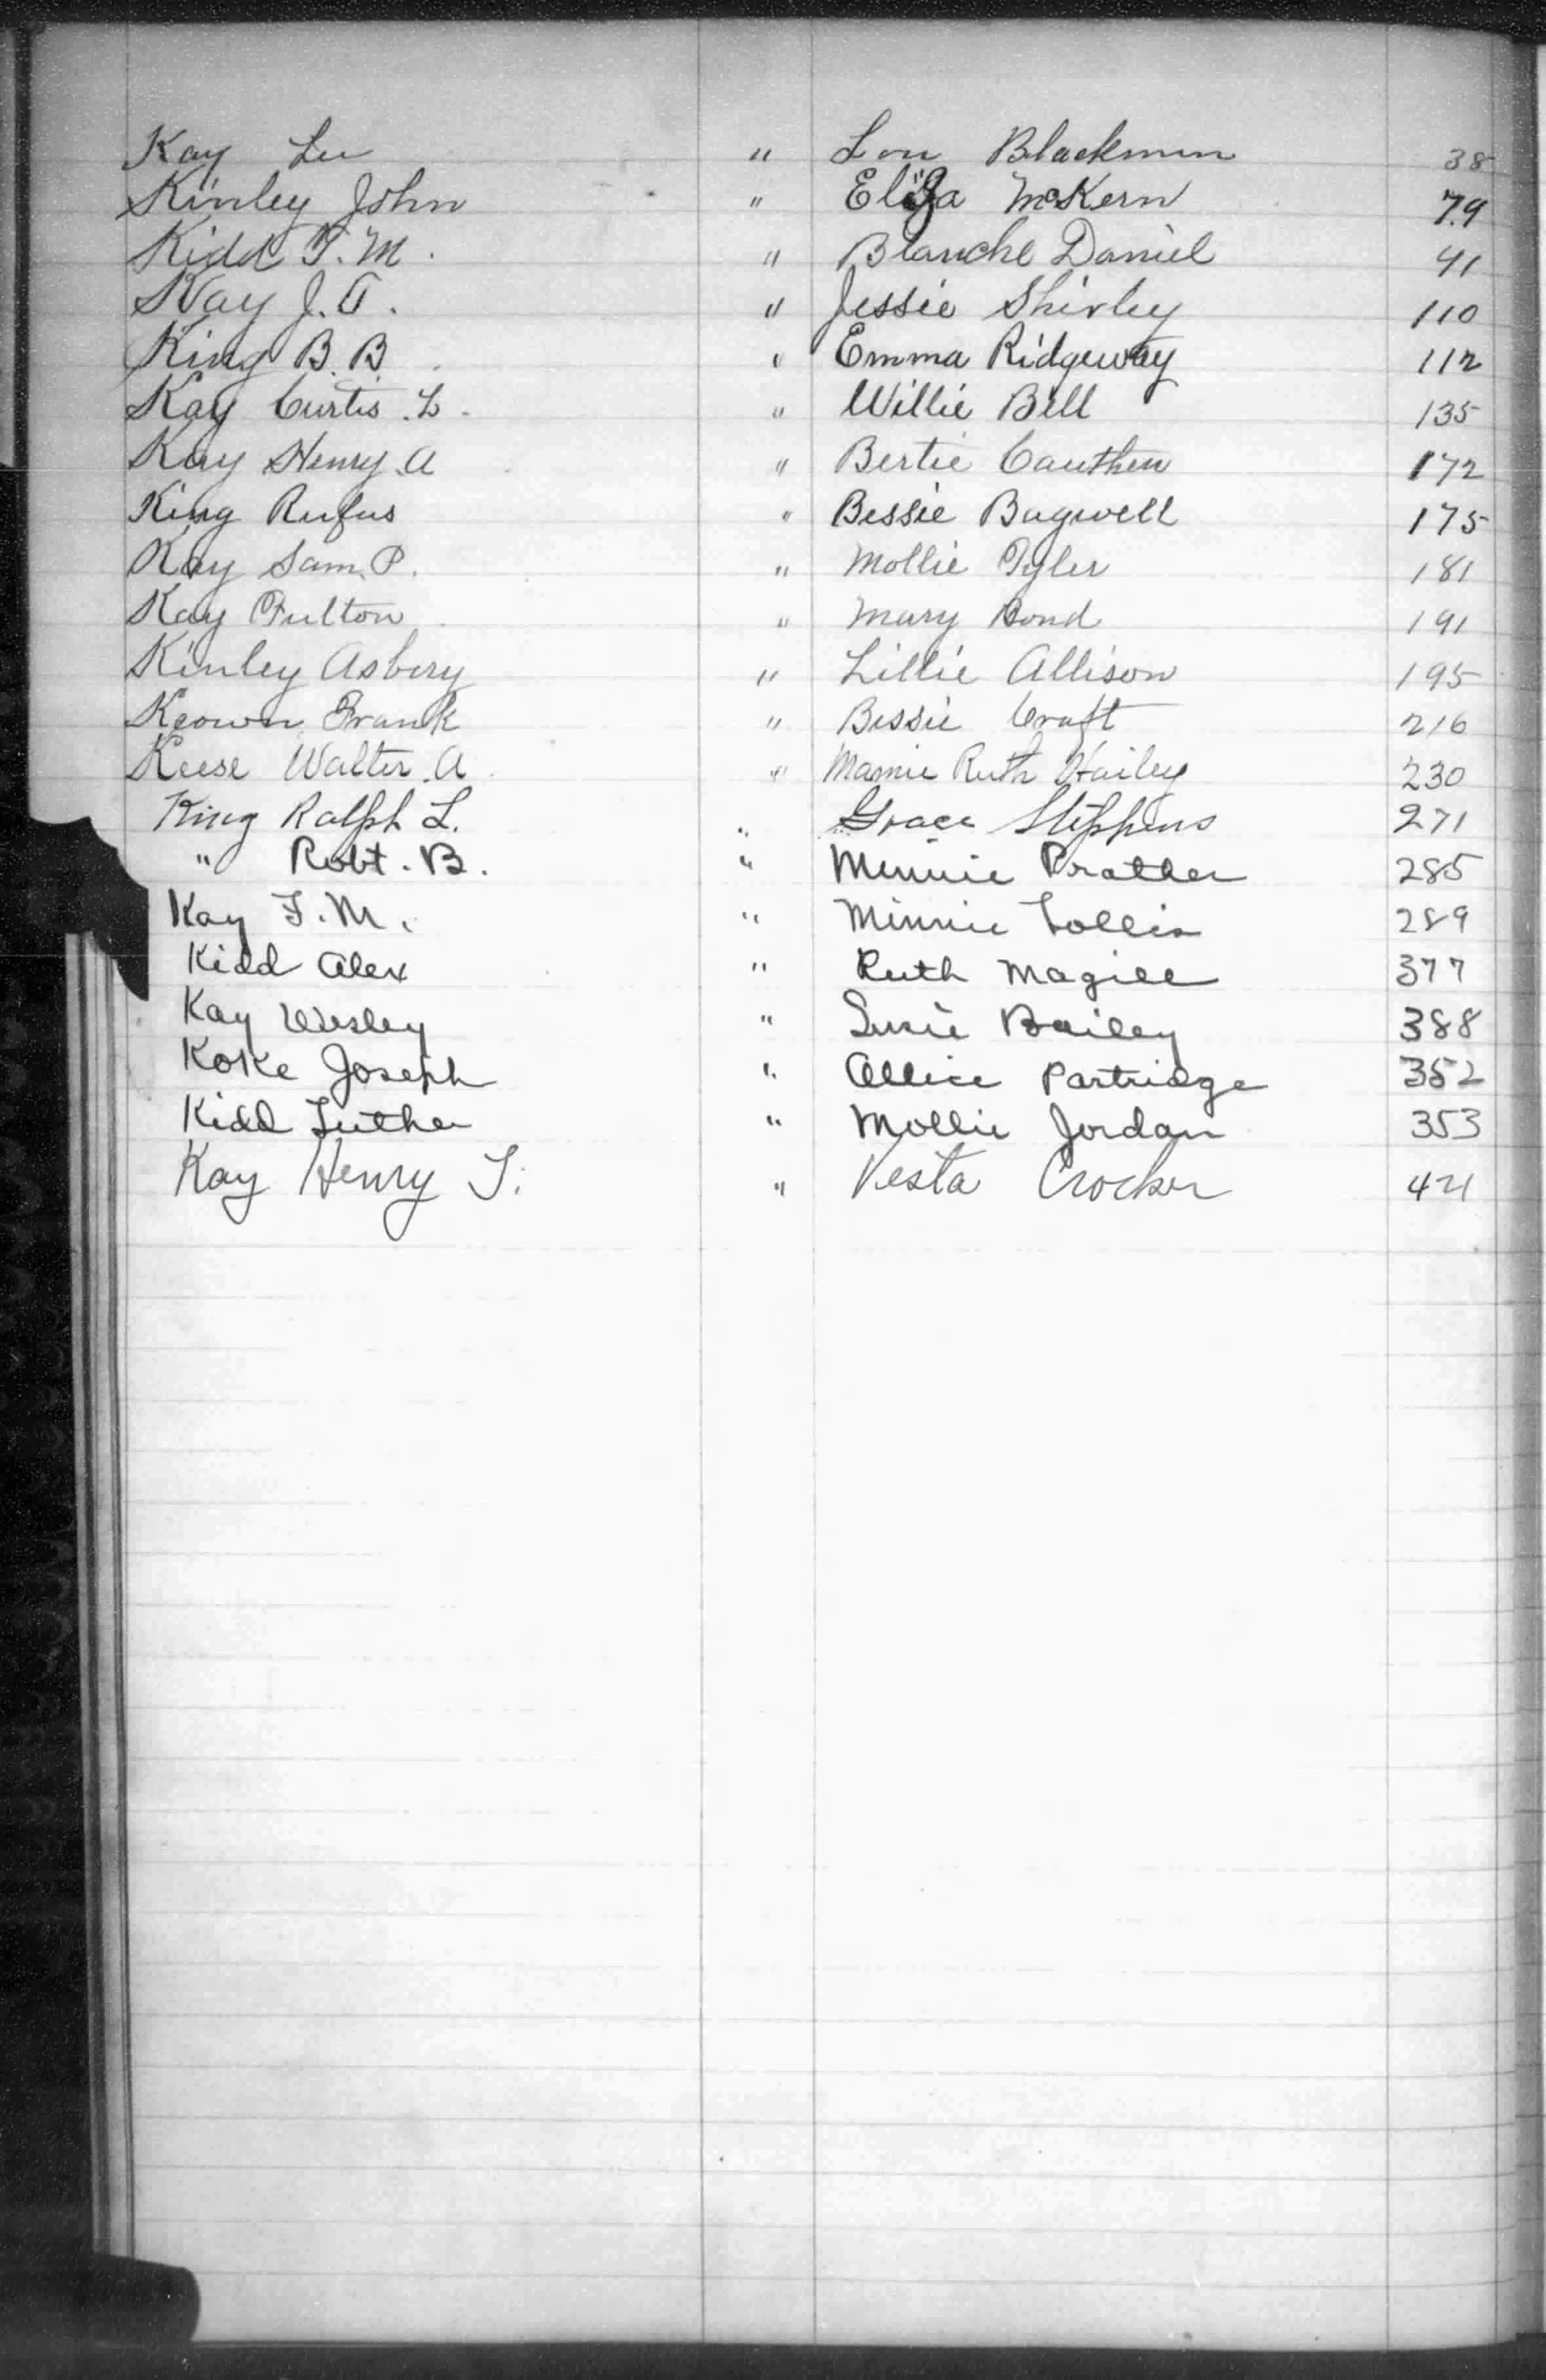 Kay Lee " Lou Blackmun 38
Kinley John " Eliza McKern 79
Kidd T. M. " Blanche Daniel 41
Kay J. T. " Jessie Shirley 110
King B. B. " Emma Ridgeway 112
Kay Curtis L. " Willie Bell 135
Kay Henry A " Bertie Cauthen 172
King Rufus " Bessie Bagwell 175
Kay Sam. P. " Mollie Tyler 181
Kay Fulton " Mary Bond 191
Kinley Asbery " Lillie Allison 195
Keown Frank " Bessie Craft 216
Keese Walter. A " Mamie Ruth Hailey 230
King Ralph L. " Grace Steppens 271
" Robt. B. " Minnie Prather 285
Kay F. M. " Minnie Lollis 289
Kidd Alex " Ruth Magill 377
Kay Wesley " Susie Bailey 388
Koke Joseph " Allice Partridge 352
Kidd Luther " Mollie Jordan 353
Kay Henry T. " Vesta Crocker 421